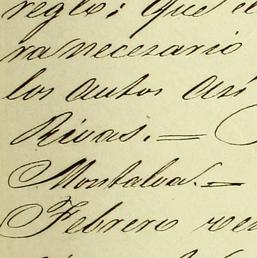 reglo; que el
ra necesario
los autos así
Rivas. =
Montalva. =
Febrero vei